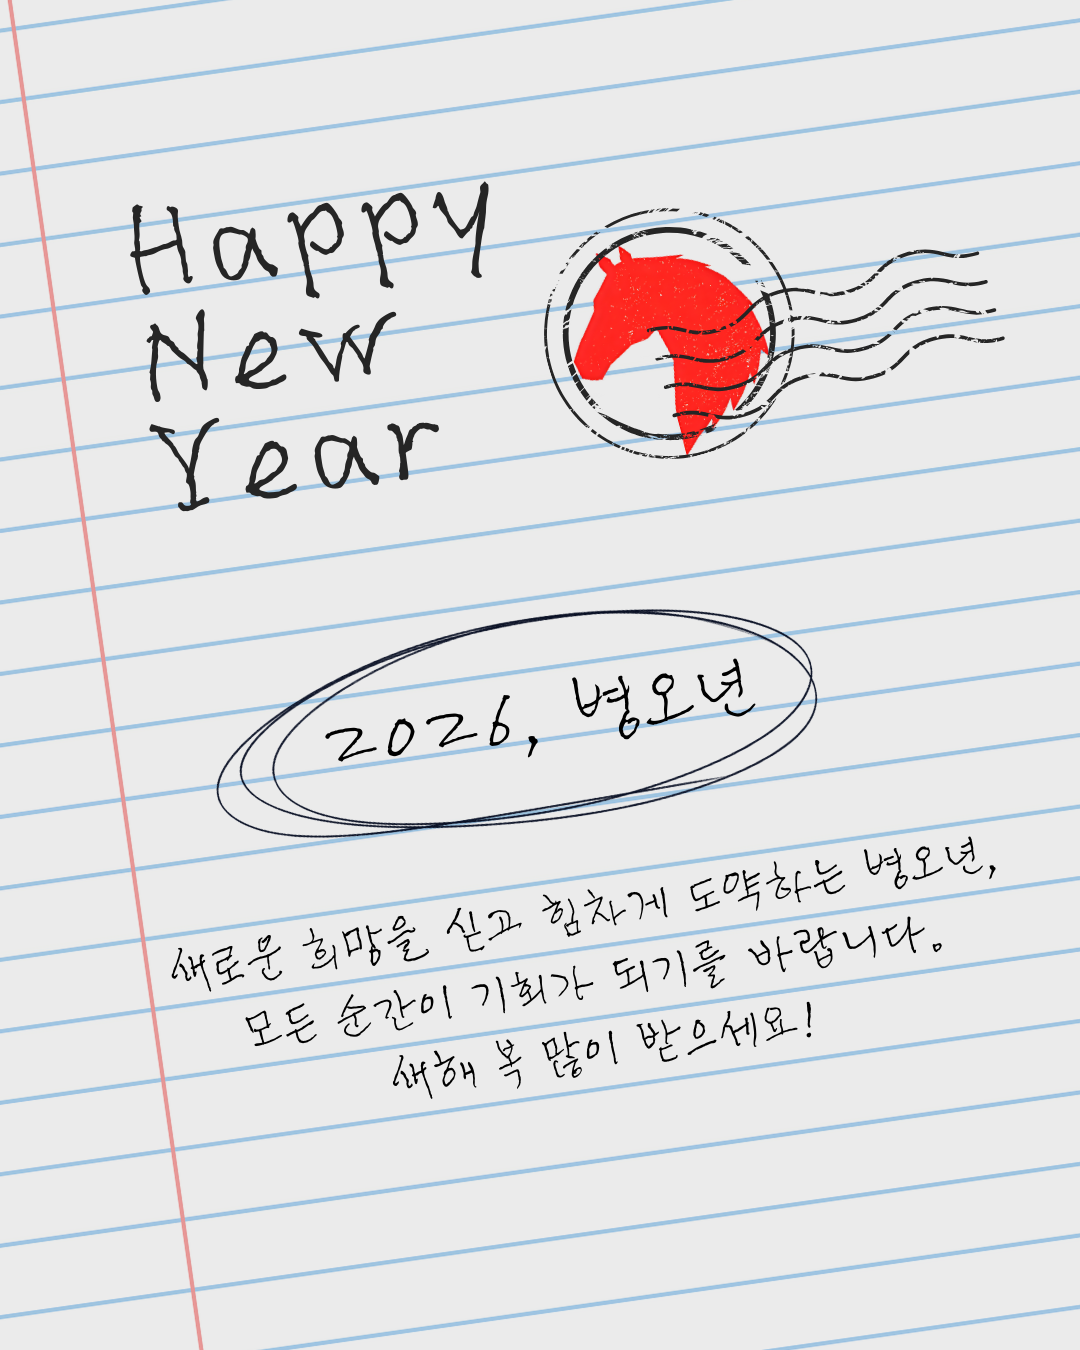 Happy
New
Year
2026, 병오년
새로운 희망을 싣고 힘차게 도약하는 병오년,
모든 순간이 기회가 되기를 바랍니다.
새해 복 많이 받으세요!